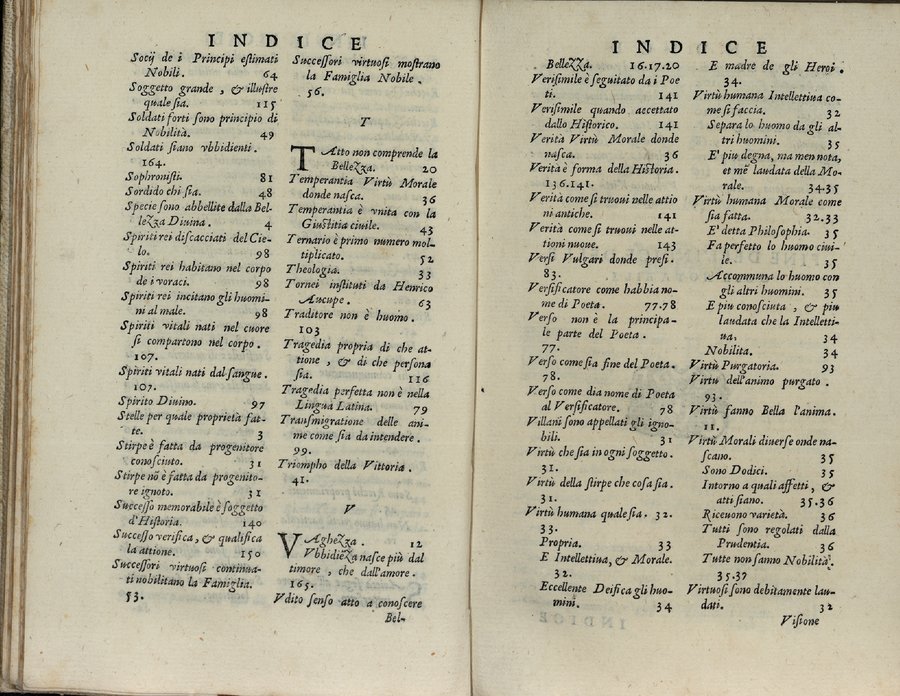 INDICE
Socij de i Principi estimati
Nobili. 64
Soggetto grande, & illustre
quale sia. 115
Soldati forti sono principio di
Nobilità. 49
Soldati siano vbbidienti.
164.
Sophronisti. 81
Sordido chi sia. 48
Specie sono abbellite dalla Bel-
lezza Diuina. 4
Spiriti rei discacciati del Cie-
lo. 98
Spiriti rei habitano nel corpo
de i voraci. 98
Spiriti rei incitano gli huomi-
ni al male. 98
Spiriti vitali nati nel cuore
si compartono nel corpo.
107.
Spiriti vitali nati dal sangue.
107.
Spirito Diuino. 97
Stelle per quale proprietà fat-
te. 3
Stirpe è fatta da progenitore
conosciuto. 31
Stirpe nõ è fatta da progenito-
re ignoto. 31
Successo memorabile è soggetto
d'Historia. 140
Successo verifica, & qualifica
la attione. 150
Successori virtuosi continua-
ti nobilitano la Famiglia.
53.
Successori virtuosi mostrano
la Famiglia Nobile.
56.
T
TAtto non comprende la
Bellezza. 20
Temperantia Virtù Morale
donde nasca. 36
Temperantia è vnita con la
Giustitia ciuile. 43
Ternario è primo numero mol-
tiplicato. 52
Theologia. 33
Tornei instituti da Henrico
Aucupe. 63
Traditore non è huomo.
103
Tragedia propria di che at-
tione, & di che persona
sia. 116
Tragedia perfetta non è nella
Lingua Latina. 79
Transmigratione delle ani-
me come sia da intendere.
99.
Triompho della Vittoria.
41.
V
VAghezza. 12
Vbbidiēza nasce più dal
timore, che dall'amore.
165.
Vdito senso atto a conoscere
Bel-
INDICE
Bellezza. 16.17.20
Verisimile è seguitato da i Poe
ti. 141
Verisimile quando accettato
dallo Historico. 141
Verità Virtù Morale donde
nasca. 36
Verità è forma della Historia.
136.141.
Verità come si truoui nelle attio
ni antiche. 141
Verità come si truoui nelle at-
tioni nuoue. 143
Versi Vulgari donde presi.
83.
Versificatore come habbia no-
me di Poeta. 77.78
Verso non è la principa-
le parte del Poeta.
77.
Verso come sia fine del Poeta.
78.
Verso come dia nome di Poeta
al Versificatore. 78
Villani sono appellati gli igno-
bili. 31
Virtù che sia in ogni soggetto.
31.
Virtù della stirpe che cosa sia.
31.
Virtù humana quale sia. 32.
33.
Propria. 33
E Intellettiua, & Morale.
32.
Eccellente Deifica gli huo-
mini. 34
E madre de gli Heroi.
34.
Virtù humana Intellettiua co-
me si faccia. 32
Separa lo huomo da gli al-
tri huomini. 35
E' piu degna, ma men nota,
et me laudata della Mo-
rale. 34.35
Virtù humana Morale come
sia fatta. 32.33
E' detta Philosophia. 35
Fa perfetto lo huomo ciui-
le. 35
Accommuna lo huomo con
gli altri huomini. 35
E piu conosciuta, & piu
laudata che la Intelletti-
ua. 34
Nobilita. 34
Virtù Purgatoria. 93
Virtù dell'animo purgato.
93.
Virtù fanno Bella l'anima.
11.
Virtù Morali diuerse onde na-
scano. 35
Sono Dodici. 35
Intorno a quali affetti, &
atti siano. 35.36
Riceuono varietà. 36
Tutti sono regolati dalla
Prudentia. 36
Tutte non fanno Nobilità.
35.37
Virtuosi sono debitamente lau-
dati. 32
Visione